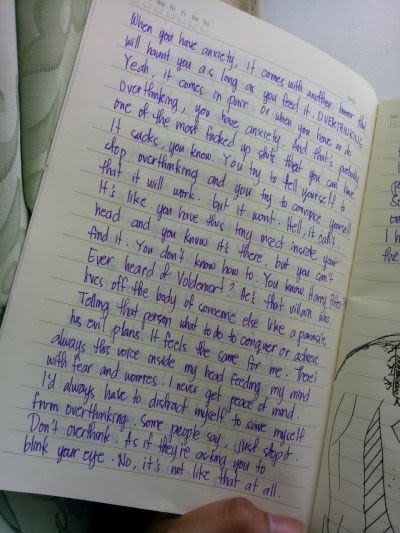 When you have anxiety, it comes with another terror that
will haunt you as long as you feed it. OVERTHINKING.
Yeah, it comes in pair. or when you have or do
overthinking, you have anxiety. And that's probably
one of the most fucked up shits that you can have.
It sucks, you know. You try to tell yourself to
stop overthinking and you try to convince yourself
that it will work. but it wont. Hell, it can't.
It's like you have this tiny insect inside your
head and you know it's there. but you can't
find it. You don't know how to. You know Harry Potter?
Ever heard of Voldemort? Bet that villain who
lives off the body of someone else like a parasite.
Telling that person what to do to conquer or achieve
his evil plans. It feels the same for me. There's
always this voice inside my head feeding my mind
with fear and worries. I never get peace of mind.
I'd always have to distract myself to save myself
from overthinking. Some people say, just stop it.
Don't overthink. As if they're asking you to
blink your eye. No, it's not like that at all.